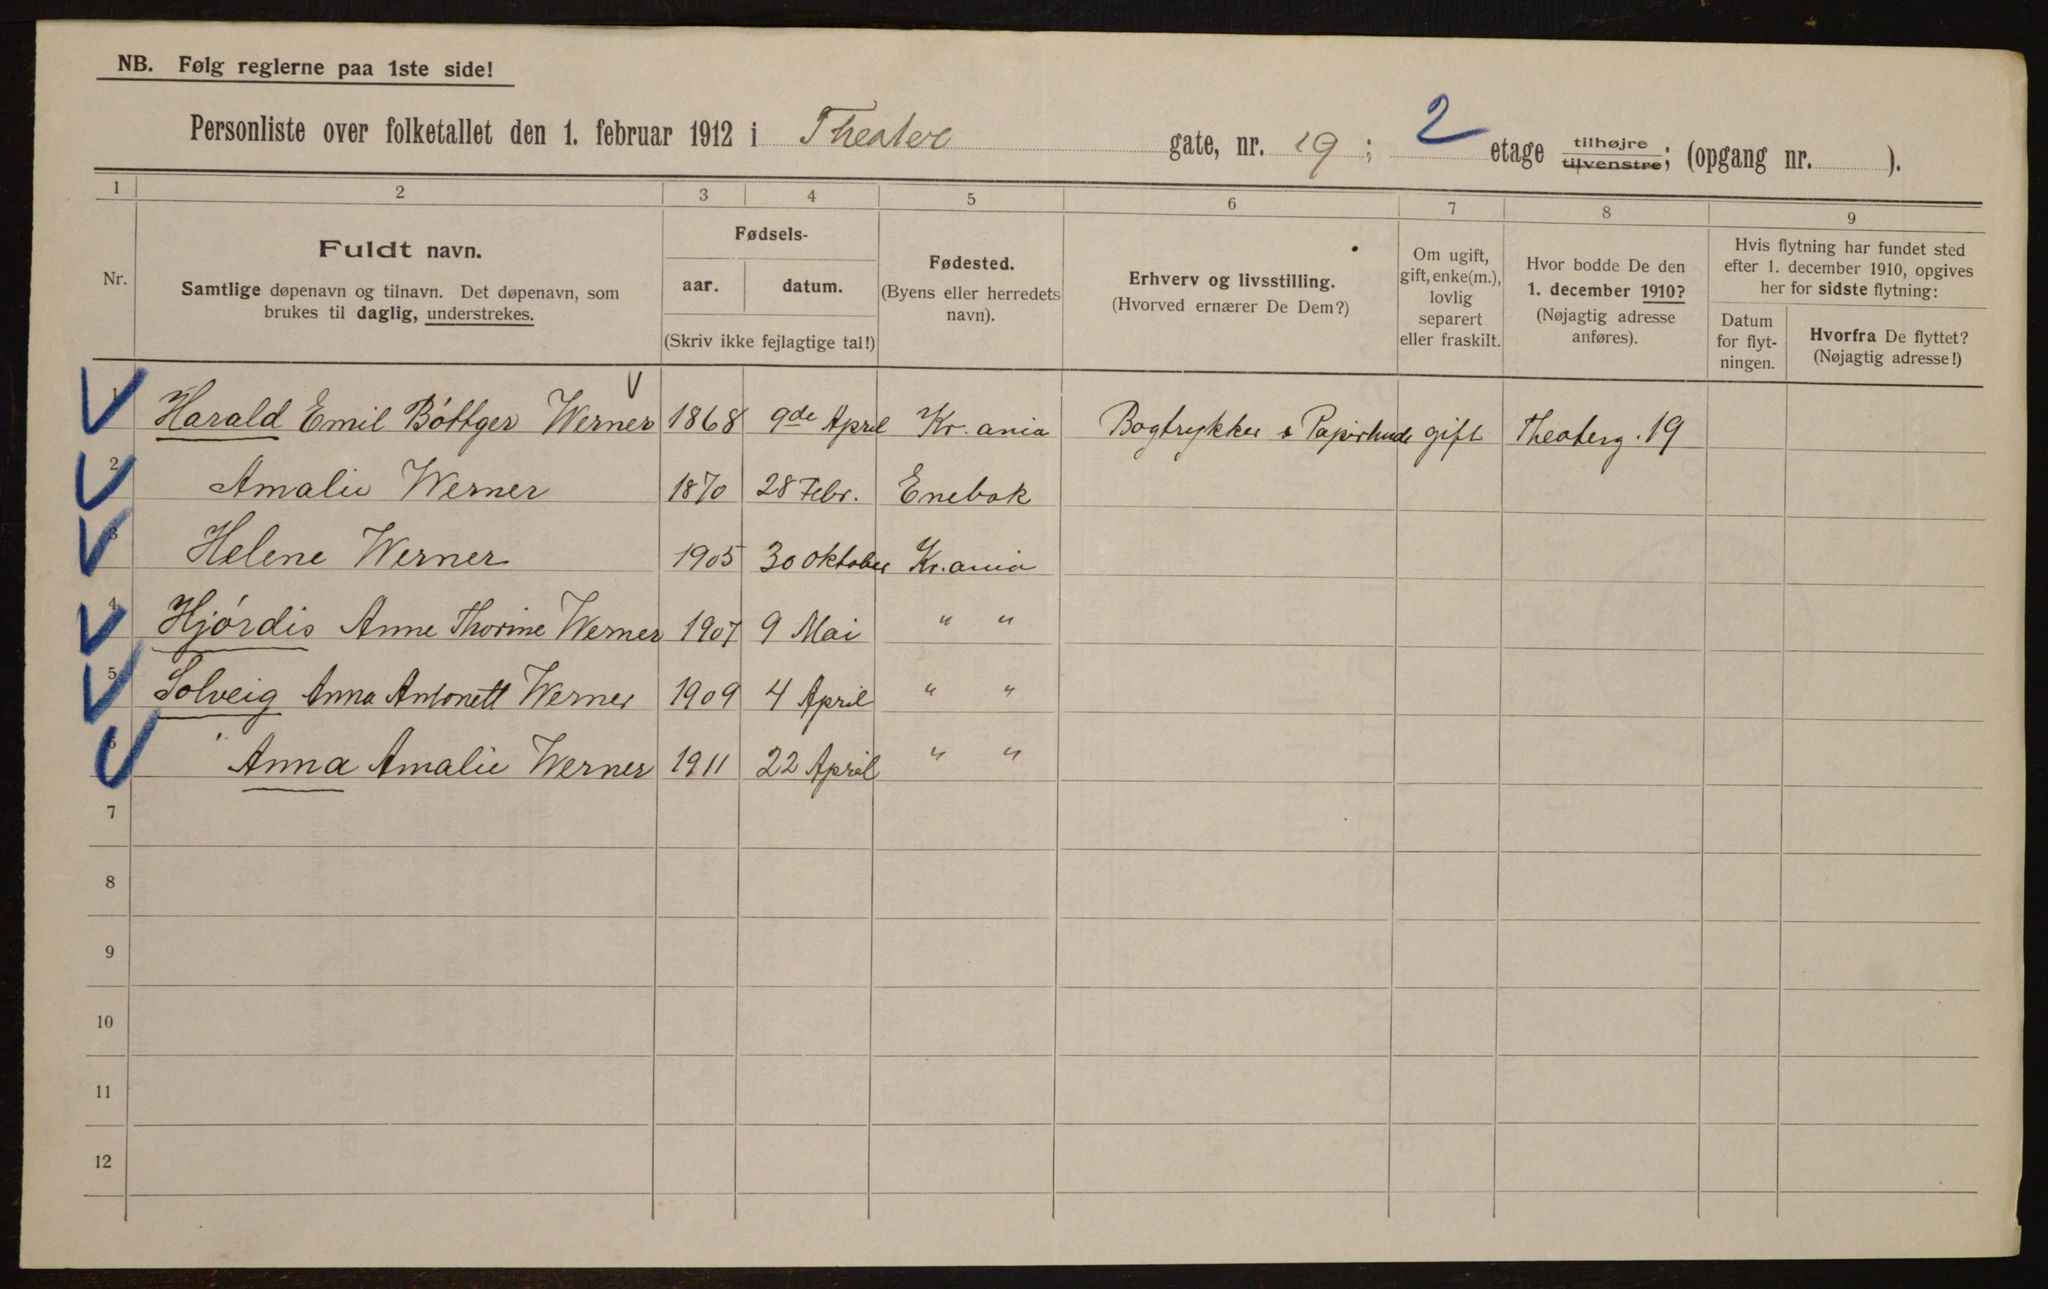 NB. Følg reglerne paa 1ste side!
Personliste over folketallet den 1. februar 1912 i Theater gate, nr. 19; 2 etage tilhøjre tilvenstre; (opgang nr. ).
1 2 3 4 5 6 7 8 9
Nr.
Fuldt navn.
Samtlige døpenavn og tilnavn. Det døpenavn, som
brukes til daglig, understrekes.
Fødsels-
aar. datum.
(Skriv ikke fejlagtige tal!)
Fødested.
(Byens eller herredets
navn).
Erhverv og livsstilling.
(Hvorved ernærer De Dem?)
Om ugift,
gift, enke(m.),
lovlig
separert
eller fraskilt.
Hvor bodde De den
1. december 1910?
(Nøjagtig adresse
anføres).
Hvis flytning har fundet sted
efter 1. december 1910, opgives
her for sidste flytning:
Datum
for flyt-
ningen.
Hvorfra De flyttet?
(Nøjagtig adresse!)
1 Harald Emil Böttger Werner 1868 9de April Kr.ania Bogtrykker & gift Theaterg. 19
2 Amalie Werner 1870 28 Febr. Enebak
3 Helene Werner 1905 30 Oktober Kr.ania
4 Hjórdis Anne Thorine Werner 1907 9 Mai " "
5 Solveig Anna Antonett Werner 1909 4 April " "
6 Anna Amalie Werner 1911 22 April " "
7
8
9
10
11
12